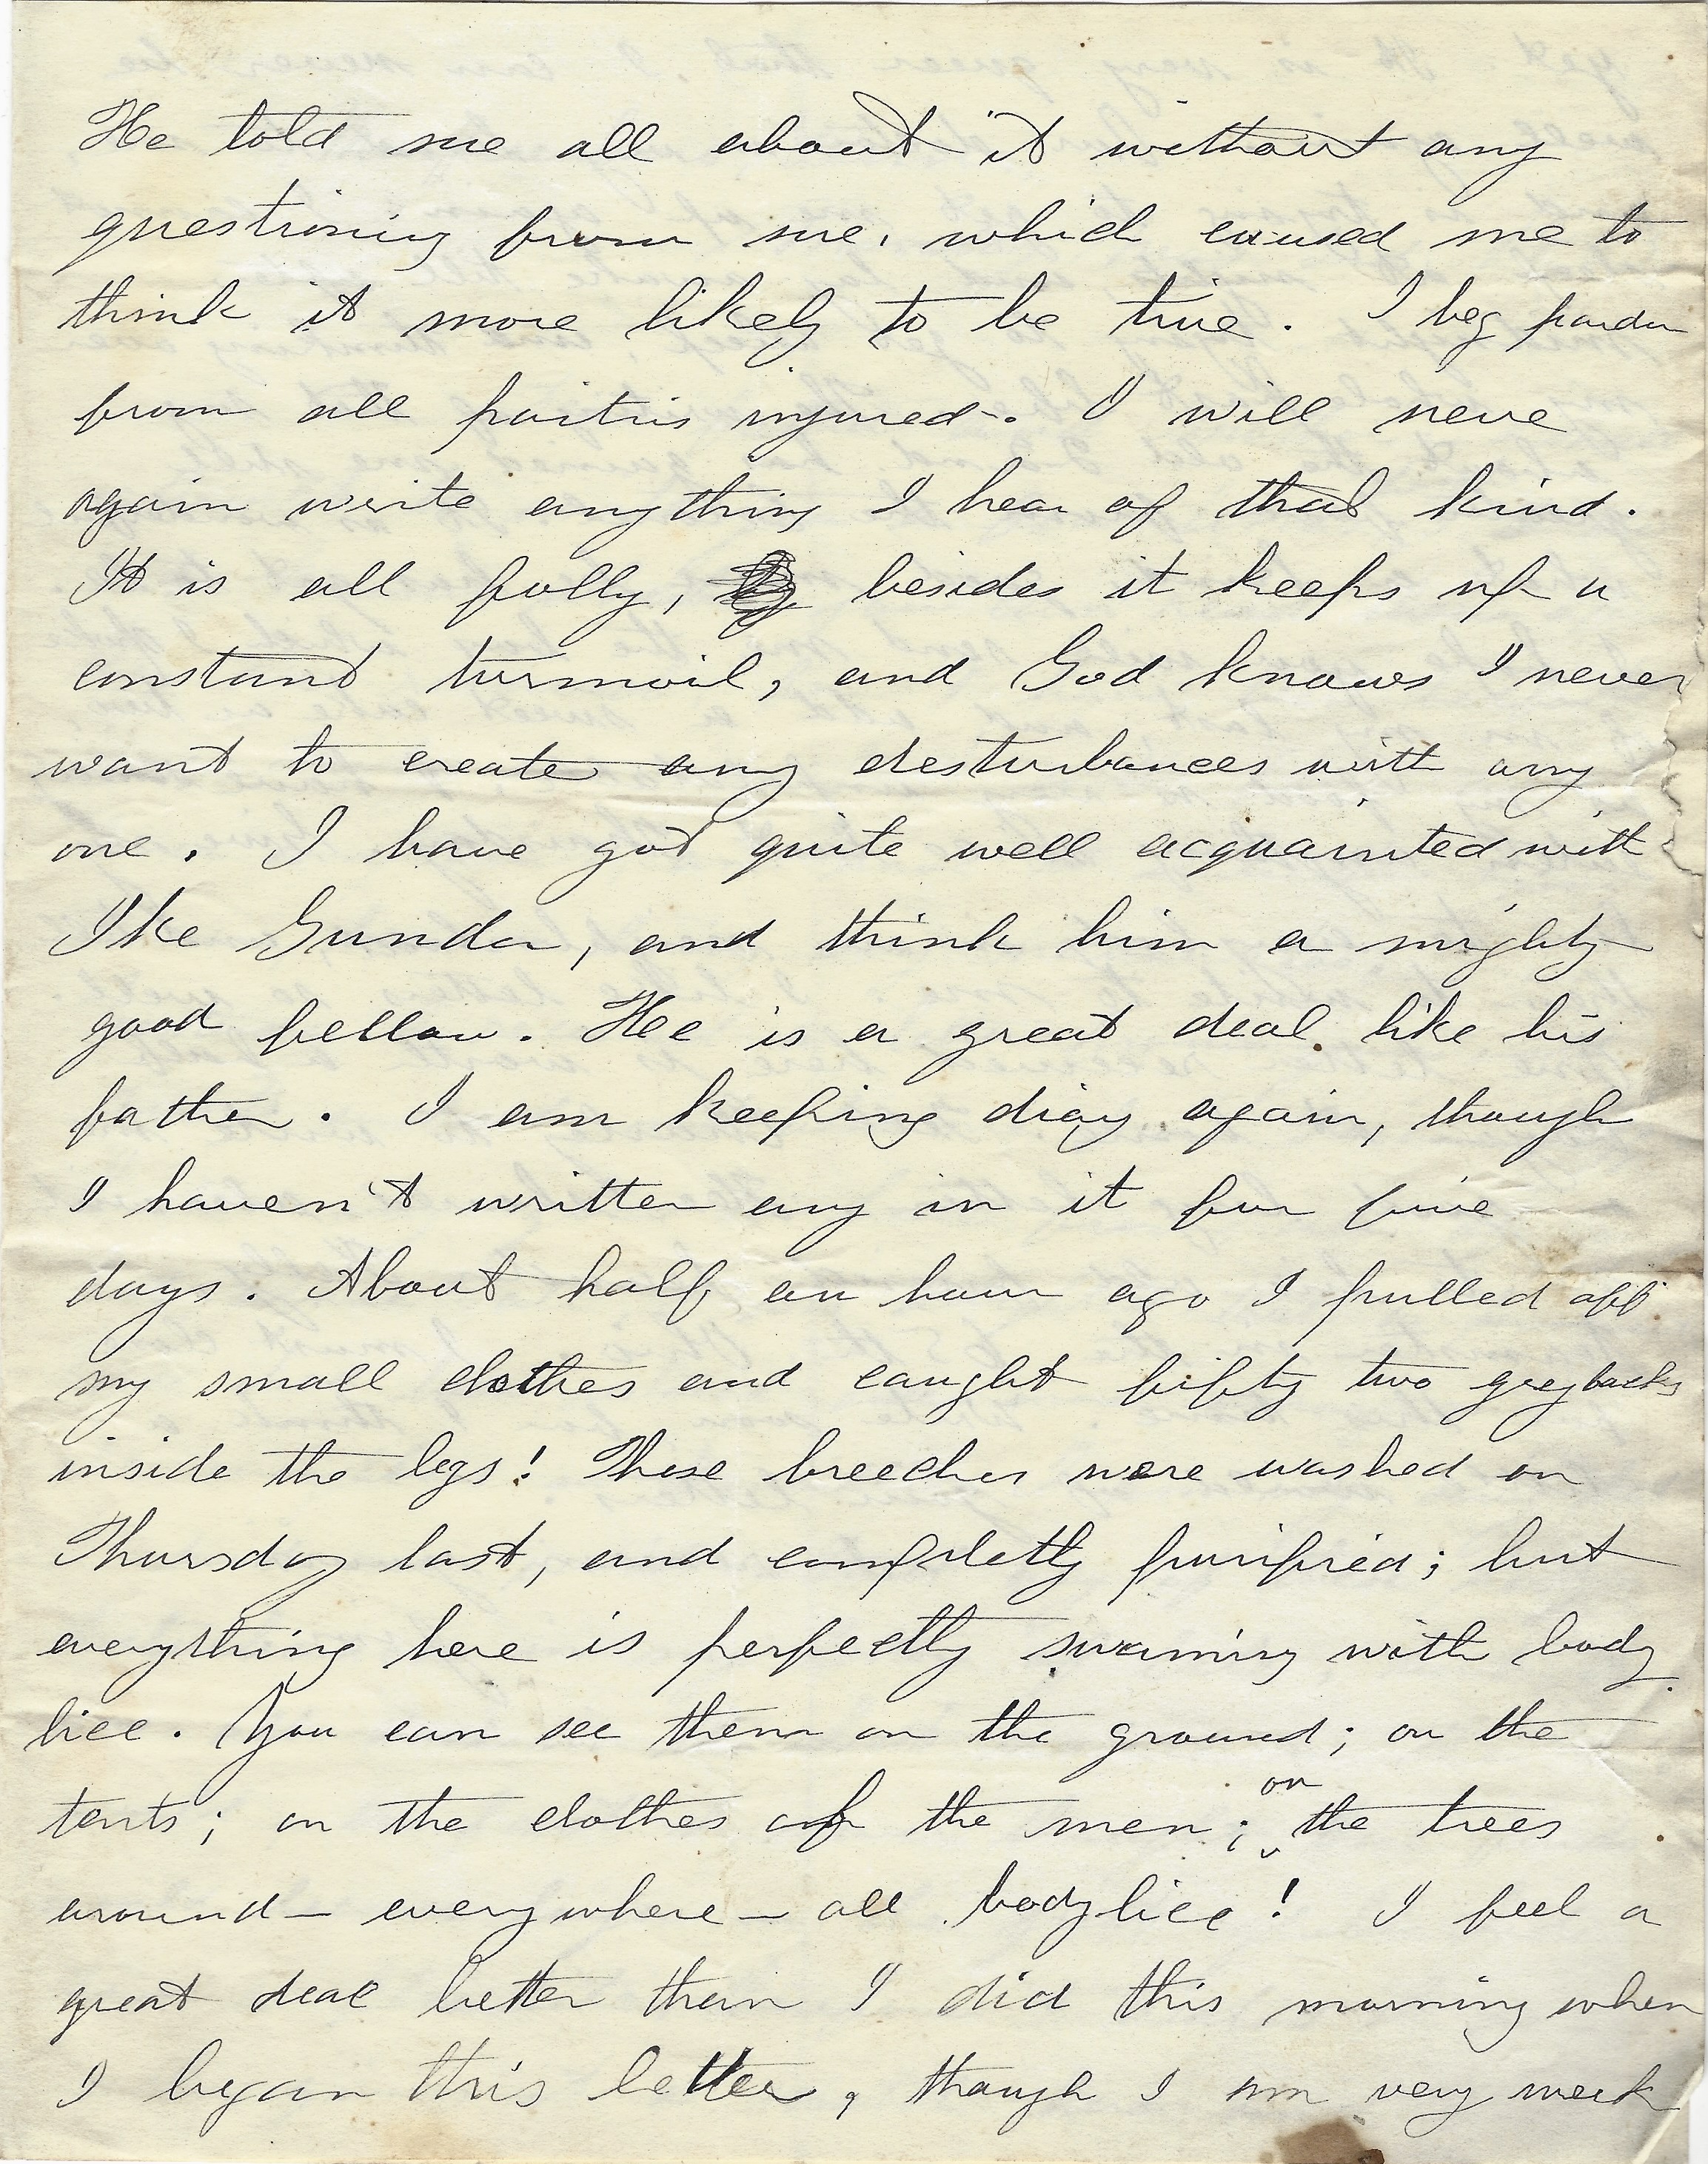 He told me all about it without any
questioning from me, which caused me to
think it more likely to be true. I beg pardon
from all parties injured. I will never
again write anything I hear of that kind.
It is all folly, besides it keeps up a
constant turmoil, and God knows I never
want to create any desturbances with any
one. I have got quite well acquainted with
Ike Gunder, and think him a mighty
good fellow. He is a great deal like his
father. I am keeping diary again, though
I haven't written any in it for five
days. About half an hour ago I pulled off
my small clothes and caught fifty two greybacks
inside the legs! These breeches were washed on
Thursday last, and completly purified; but
everything here is perfectly swarming with body
lice. You can see them on the ground; on the
tents; on the clothes of the men; on the trees
around — everywhere — all body lice! I feel a
great deal better than I did this morning when
I began this letter, though I am very weak